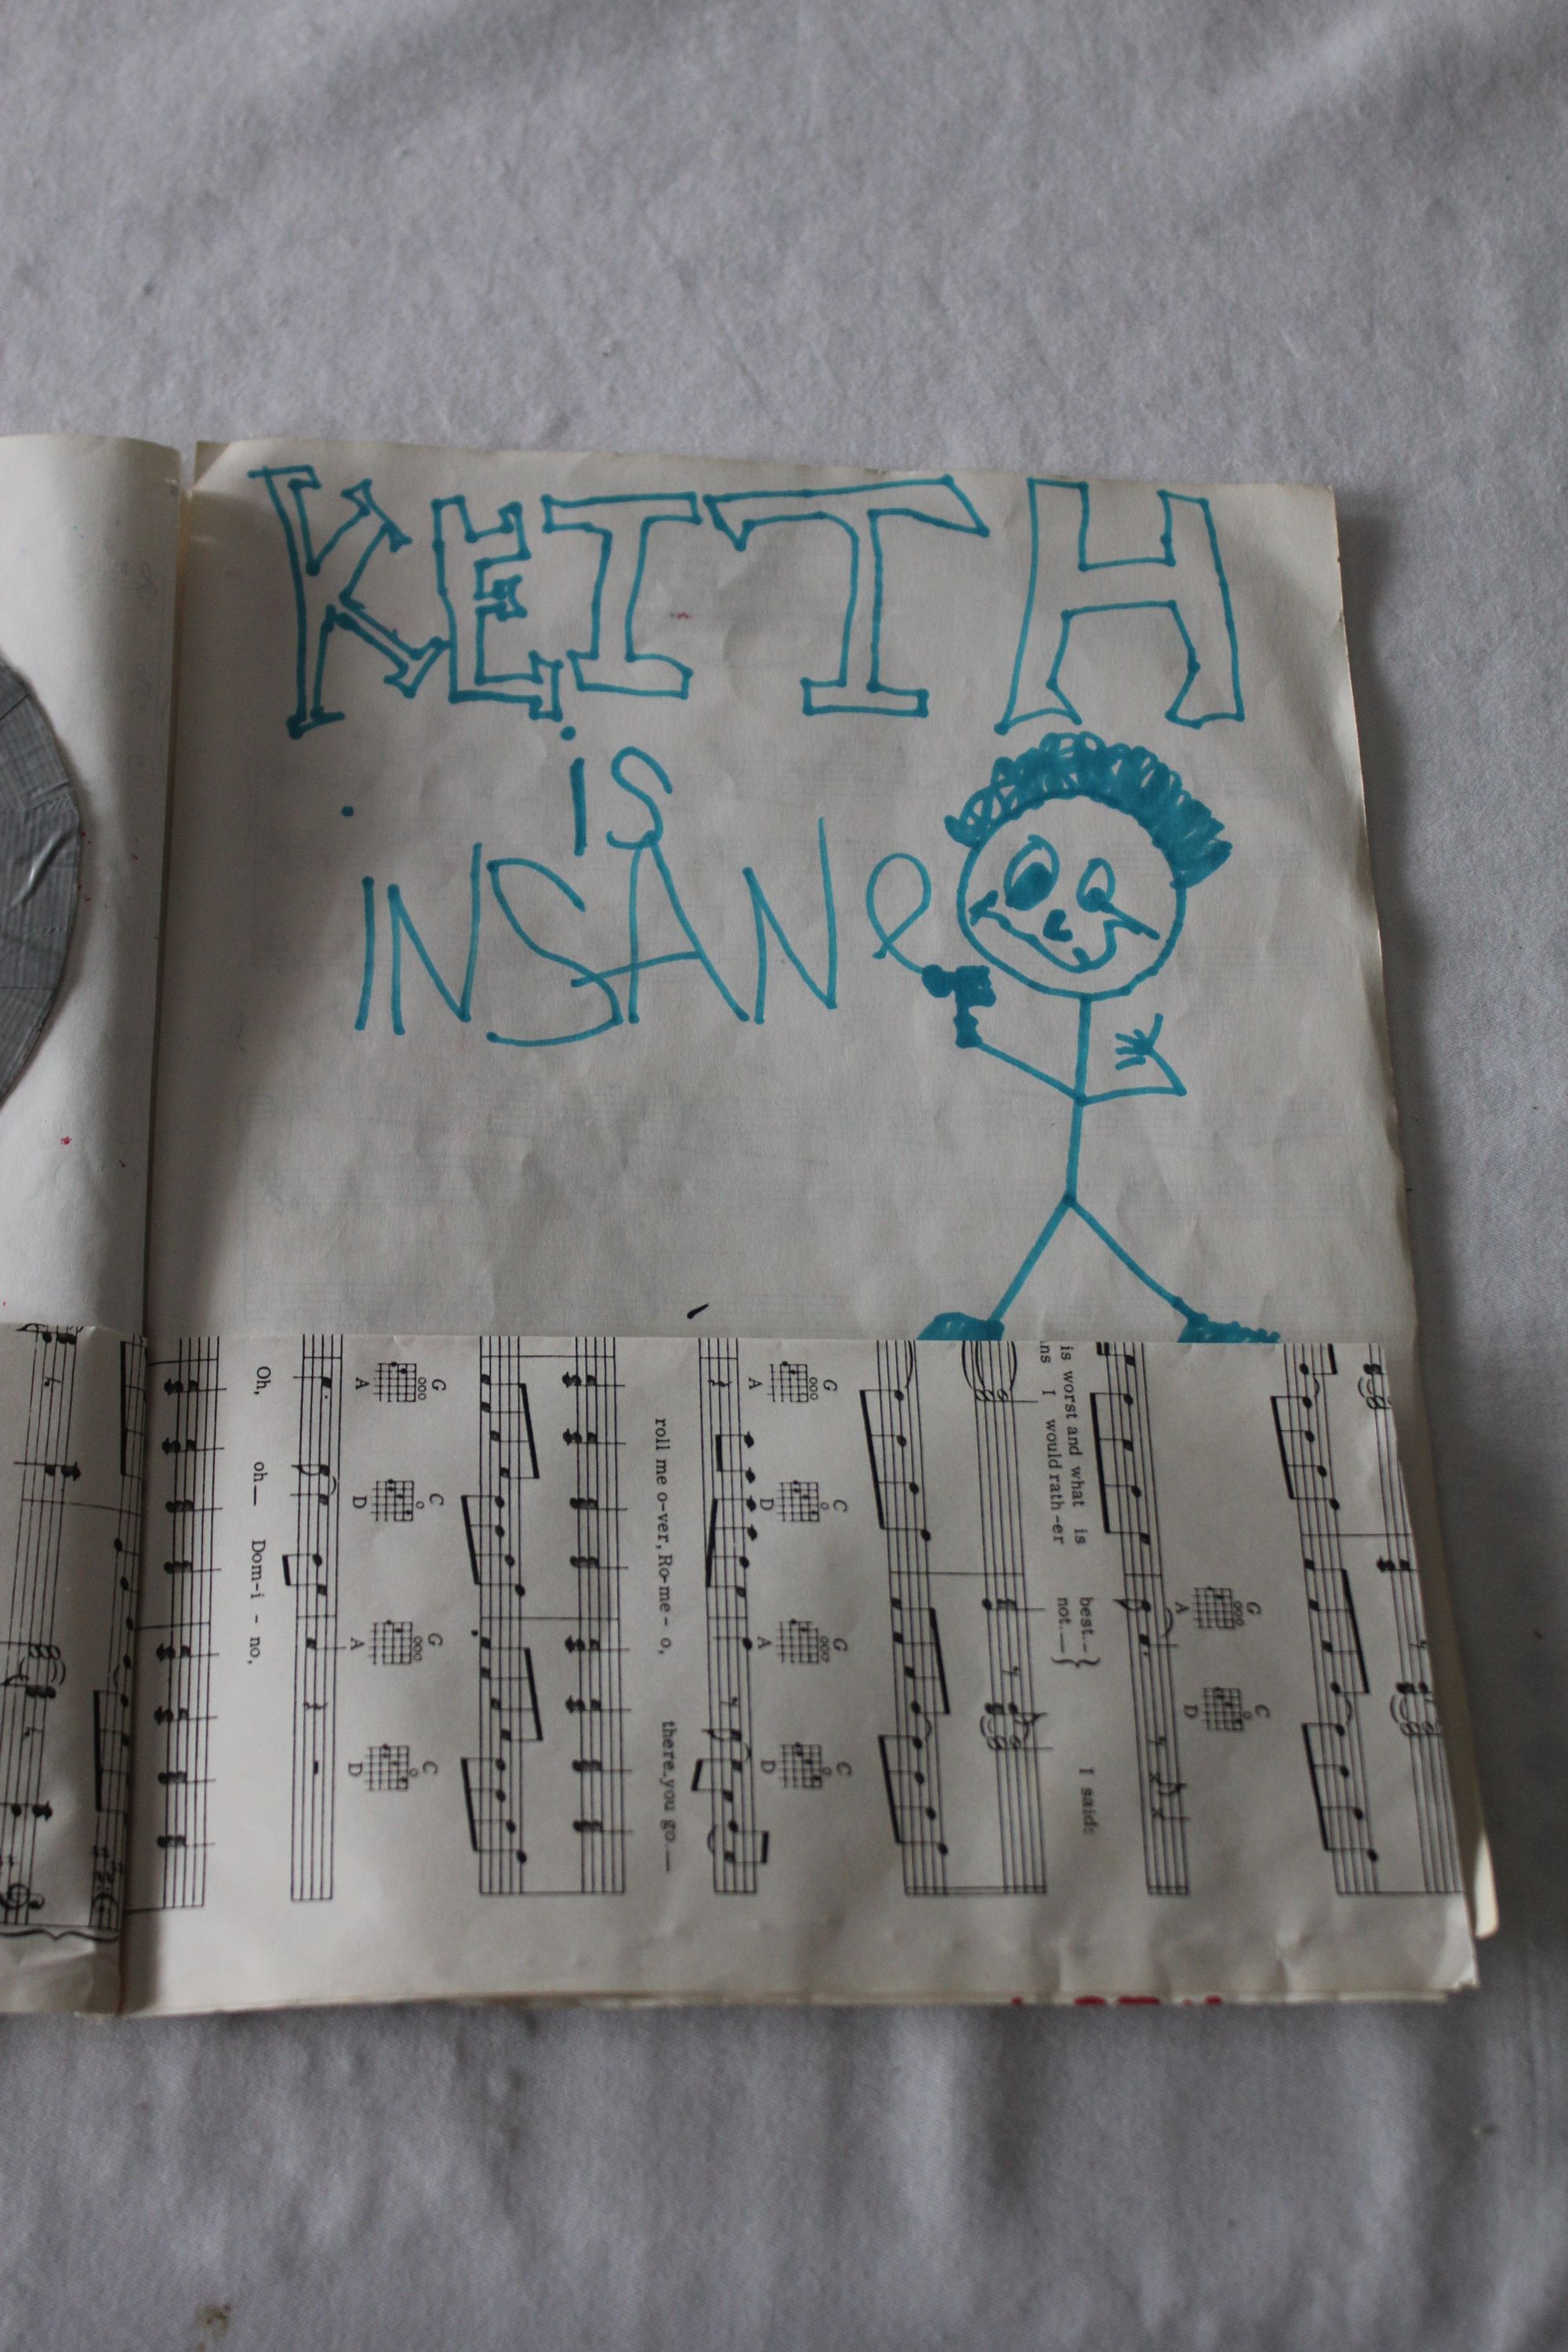 KEITH
is
INSANe
is worst and what is best.
I would rath-er not.
I said:
G C G C
A D A D
roll me o-ver, Ro-me-o, there you go.
G C G C
A D A D
Oh, oh Dom-i-no,
G C
A D